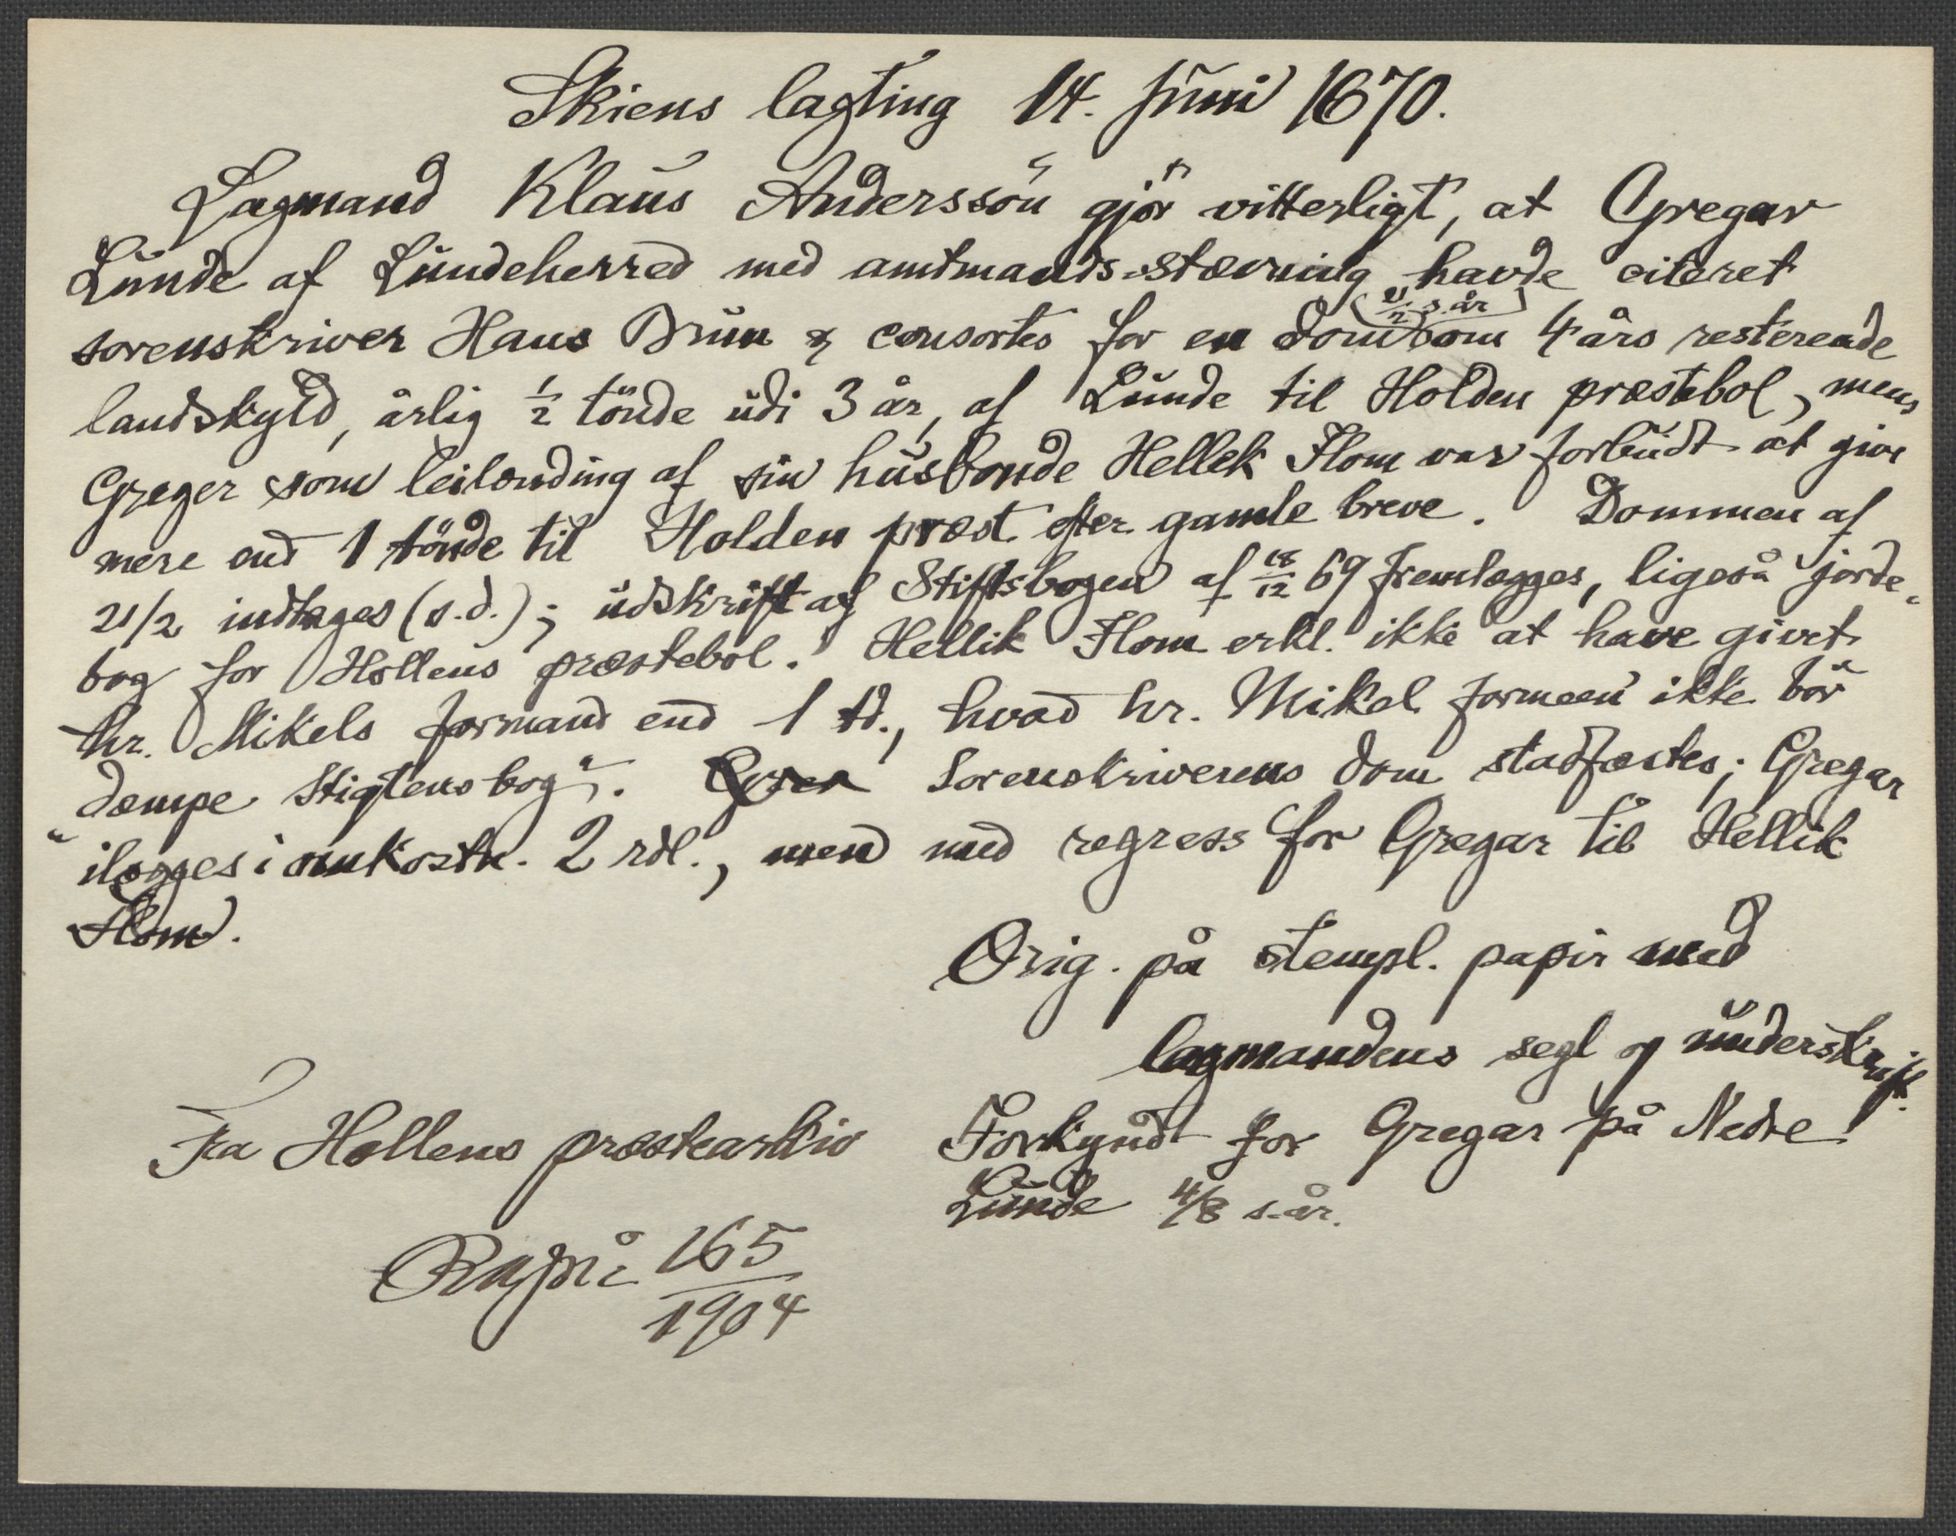 Skiens lagting 14. juni 1670.
Lagmand Klaus Anderssön gjör vitterligt, at Gregar
Lunde af Lundeherred med amtmands-stævning havde citeret
sorenskriver Hans Brun & consortes for en dom (21/2 s. år) om 4 års resterende
landskyld, årlig 1/2 tönde udi 3 år, af Lunde til Holden præstebol, mens
Greger som leilænding af sin husbonde Hellek Flom var forbudt at give
mere end 1 tönde til Holden præst efter gamle breve. Dommen af
21/2 indtages (s.d.); udskrift af Stiftsbogen af 18/12 69 fremlægges, ligeså jorde-
bog for Hollens præstebol. Hellik Flom erkl. ikke at have givet
hr. Mikels formand end 1 td., hvad hr. Mikel formeen ikke bör
"dæmpe Stigtens bog". Sorenskriverens dom stadfæstes; Gregar
ilægges i omkostn. 2 rdl., men med regress for Gregar til Hellik
Flom.
Orig. på stempl. papir med
lagmandens segl og underskrift.
Fra Hollens præstearkiv
Forkyndt for Gregar på Nedre
Lunde 4/8 s. år.
165
1904